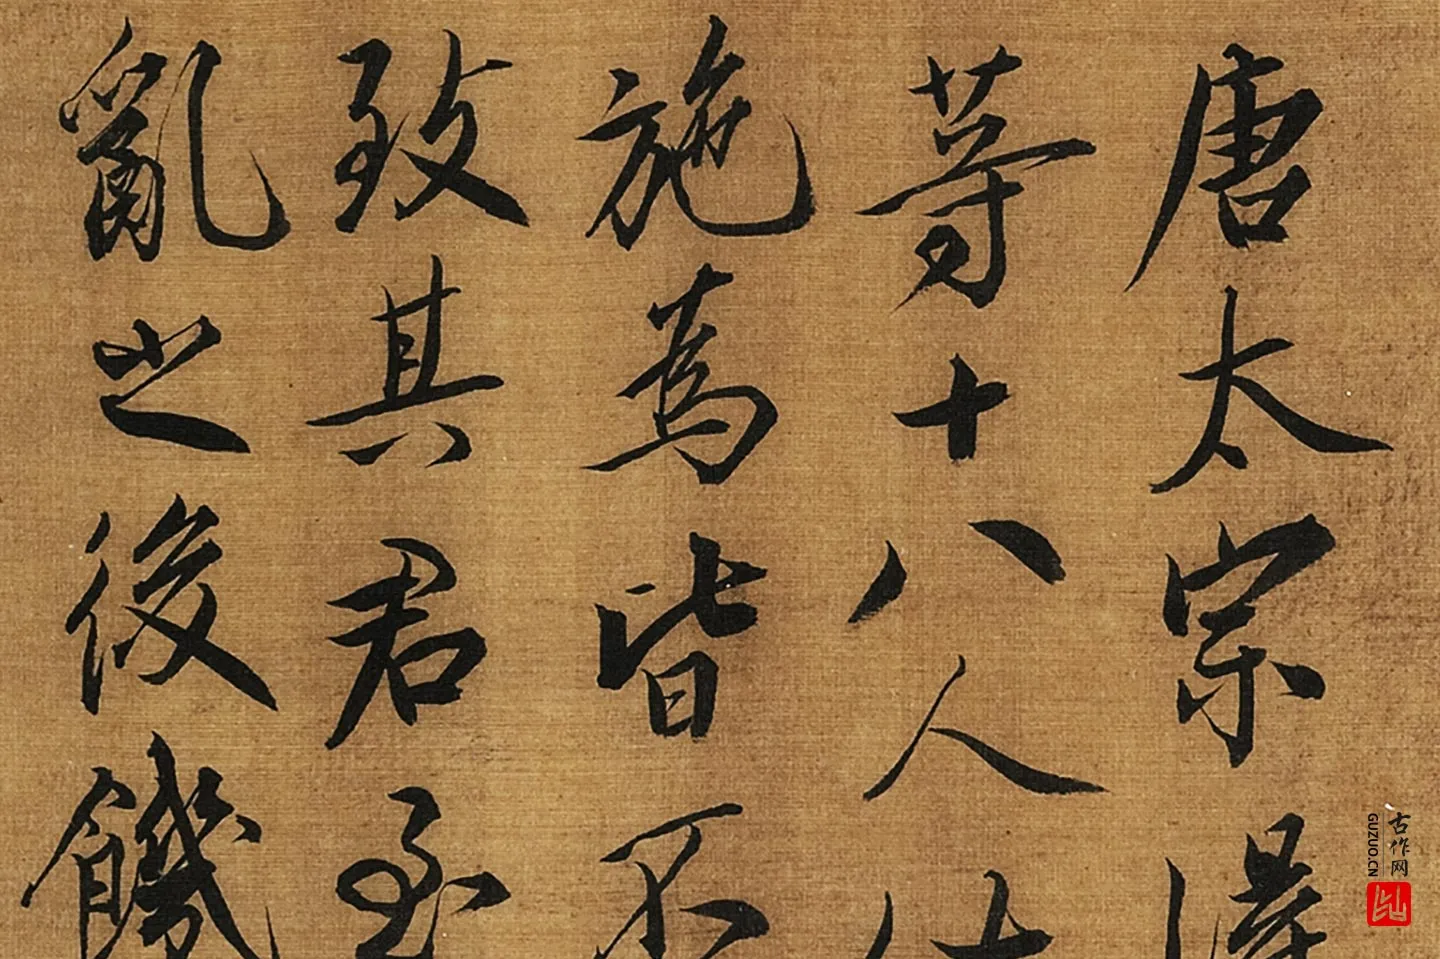 唐太宗得
等十八人
施為皆不
致其君至
亂之後饑
古作网
GUZUO.CN